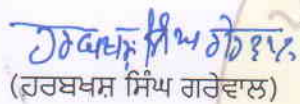 ਹਰਬਖਸ਼ ਸਿੰਘ ਗਰੇਵਾਲ
(ਹਰਬਖਸ਼ ਸਿੰਘ ਗਰੇਵਾਲ)